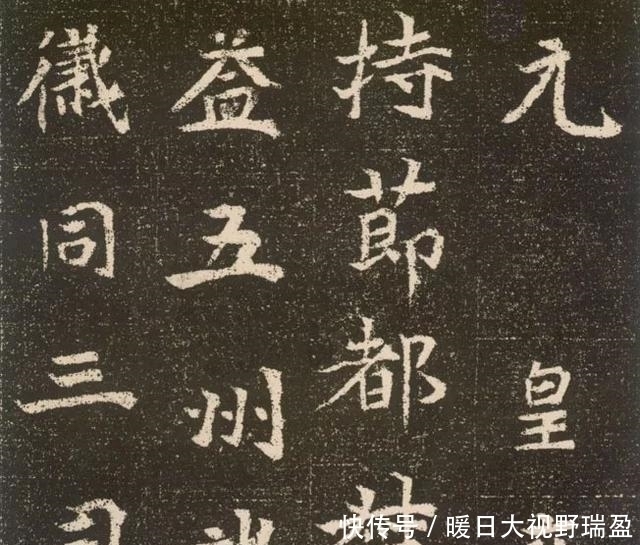 元皇
持莭都
益五州
儀同三司
快传号 / 暖日大视野瑞盈